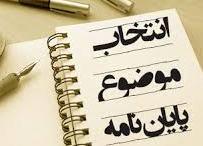 انتخاب
موضوع
پایان نامه